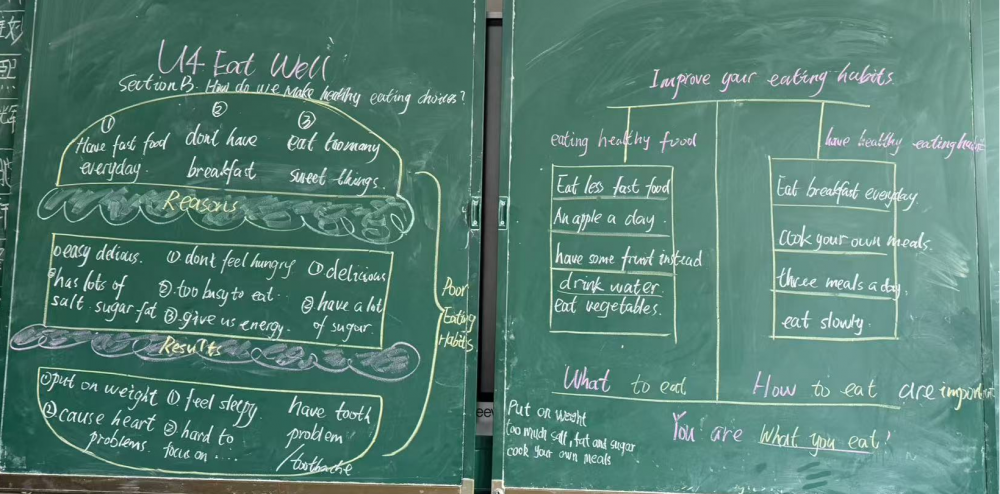 U4 Eat Well
Section B. How do we make healthy eating choices?
① Have fast food everyday.
② dont have breakfast
③ eat too many sweet things.
Reasons
① easy delicious.
② has lots of salt sugar fat
① dont feel hungry
② too busy to eat...
③ give us energy.
① delicious
② have a lot of sugar.
Results
① put on weight
② cause heart problems.
① feel sleepy
② hard to focus on....
have tooth problem
/toothache
Poor Eating Habits
Improve your eating habits
eating healthy food
Eat less fast food
An apple a day.
have some fruit instead
drink water.
eat vegetables.
have healthy eating habits
Eat breakfast everyday
Cook your own meals.
three meals a day.
eat slowly.
What to eat
How to eat are important
You are What you eat!
Put on weight
too much salt, fat and sugar
cook your own meals